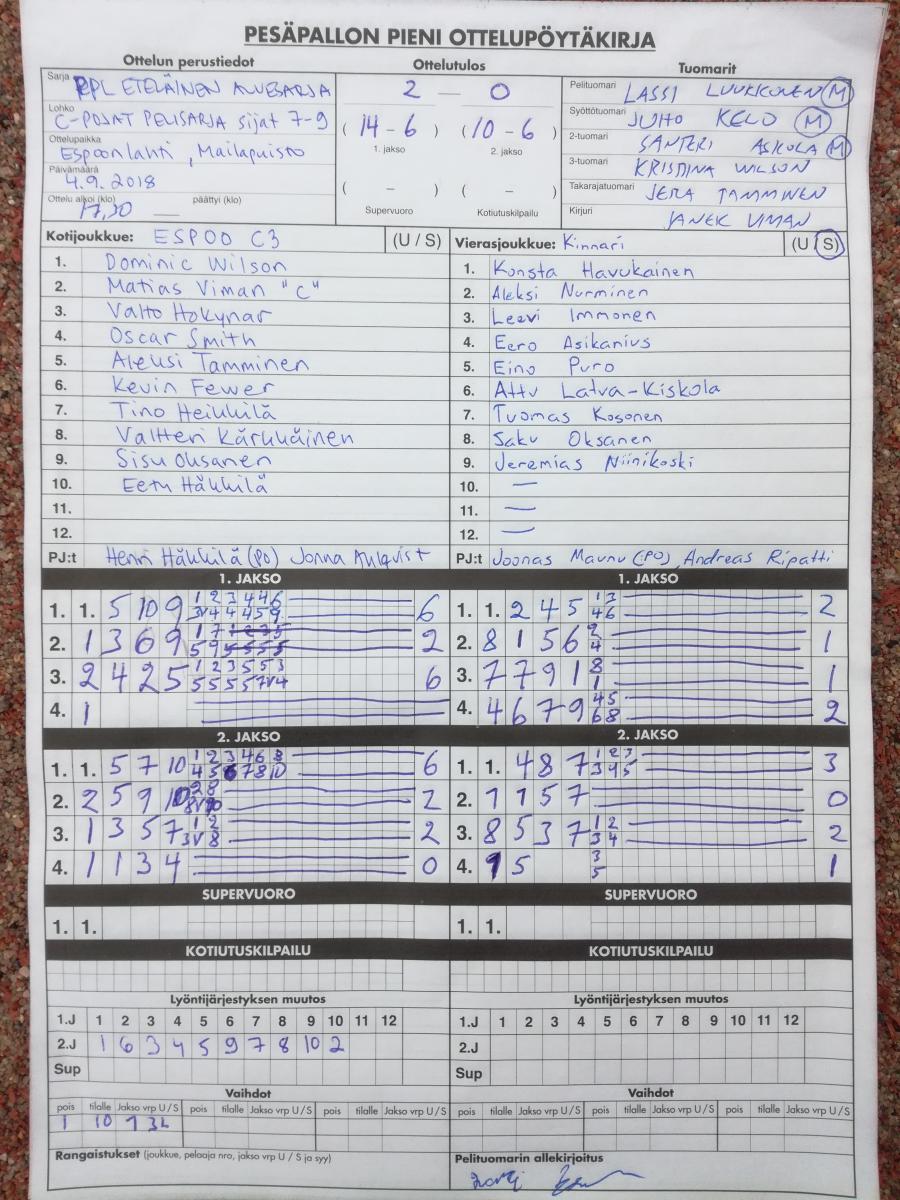 PESÄPALLON PIENI OTTELUPÖYTÄKIRJA
Ottelun perustiedot
Sarja PPL ETELÄINEN ALUESARJA
Lohko C-POJAT PELISARJA sijat 7-9
Ottelupaikka Espoonlahti, Mailapuisto
Päivämäärä 4.9.2018
Ottelu alkoi (klo) 17,30 päättyi (klo)
Ottelutulos
2 — 0
(14 - 6) (10 - 6)
1. jakso 2. jakso
( - ) ( - )
Supervuoro Kotiutuskilpailu
Tuomarit
Pelituomari LASSI LUUKKONEN (M)
Syöttötuomari JUHO KELO (M)
2-tuomari SANTERI ASKOLA (M)
3-tuomari KRISTINA WILSON
Takarajatuomari JERA TAMMINEN
Kirjuri JANEK VIMAN
Kotijoukkue: ESPOO C3 (U / S)
1. Dominic Wilson
2. Matias Viman "C"
3. Valto Hokynar
4. Oscar Smith
5. Aleksi Tamminen
6. Kevin Fewer
7. Tino Heikkilä
8. Valtteri Kärkkäinen
9. Sisu Oksanen
10. Eetu Häkkilä
11.
12.
PJ:t Henri Häkkilä (PO) Jonna Ahlqvist
Vierasjoukkue: Kinnari (U / S)
1. Konsta Havukainen
2. Aleksi Nurminen
3. Leevi Immonen
4. Eero Asikanius
5. Eino Puro
6. Attu Latva-Kiskola
7. Tuomas Kosonen
8. Saku Oksanen
9. Jeremias Niinikoski
10. —
11. —
12. —
PJ:t Joonas Maunu (PO), Andreas Ripatti
1. JAKSO
1. 1. 5 10 9 6
2. 1 3 6 9 2
3. 2 4 2 5 6
4. 1
2. JAKSO
1. 1. 5 7 10 6
2. 2 5 9 10 2
3. 1 3 5 7 2
4. 1 1 3 4 0
SUPERVUORO
1. 1.
KOTIUTUSKILPAILU
1. JAKSO
1. 1. 2 4 5 1 3 2
4 6
2. 8 1 5 6 2 1
4
3. 7 7 9 1 8 1
1
4. 4 6 7 9 4 5 2
6 8
2. JAKSO
1. 1. 4 8 7 1 2 3 3
3 4 5
2. 1 1 5 7 0
3. 8 5 3 7 1 2 2
3 4
4. 1 5 3 1
5
SUPERVUORO
1. 1.
KOTIUTUSKILPAILU
Lyöntijärjestyksen muutos
1.J 1 2 3 4 5 6 7 8 9 10 11 12
2.J 1 6 3 4 5 9 7 8 10 2
Sup
Vaihdot
pois tilalle Jakso vrp U / S pois tilalle Jakso vrp U / S pois tilalle Jakso vrp U / S
1 10 1 3
Rangaistukset (joukkue, pelaaja nro, jakso vrp U / S ja syy)
Lyöntijärjestyksen muutos
1.J 1 2 3 4 5 6 7 8 9 10 11 12
2.J
Sup
Vaihdot
pois tilalle Jakso vrp U / S pois tilalle Jakso vrp U / S pois tilalle Jakso vrp U / S
Pelituomarin allekirjoitus